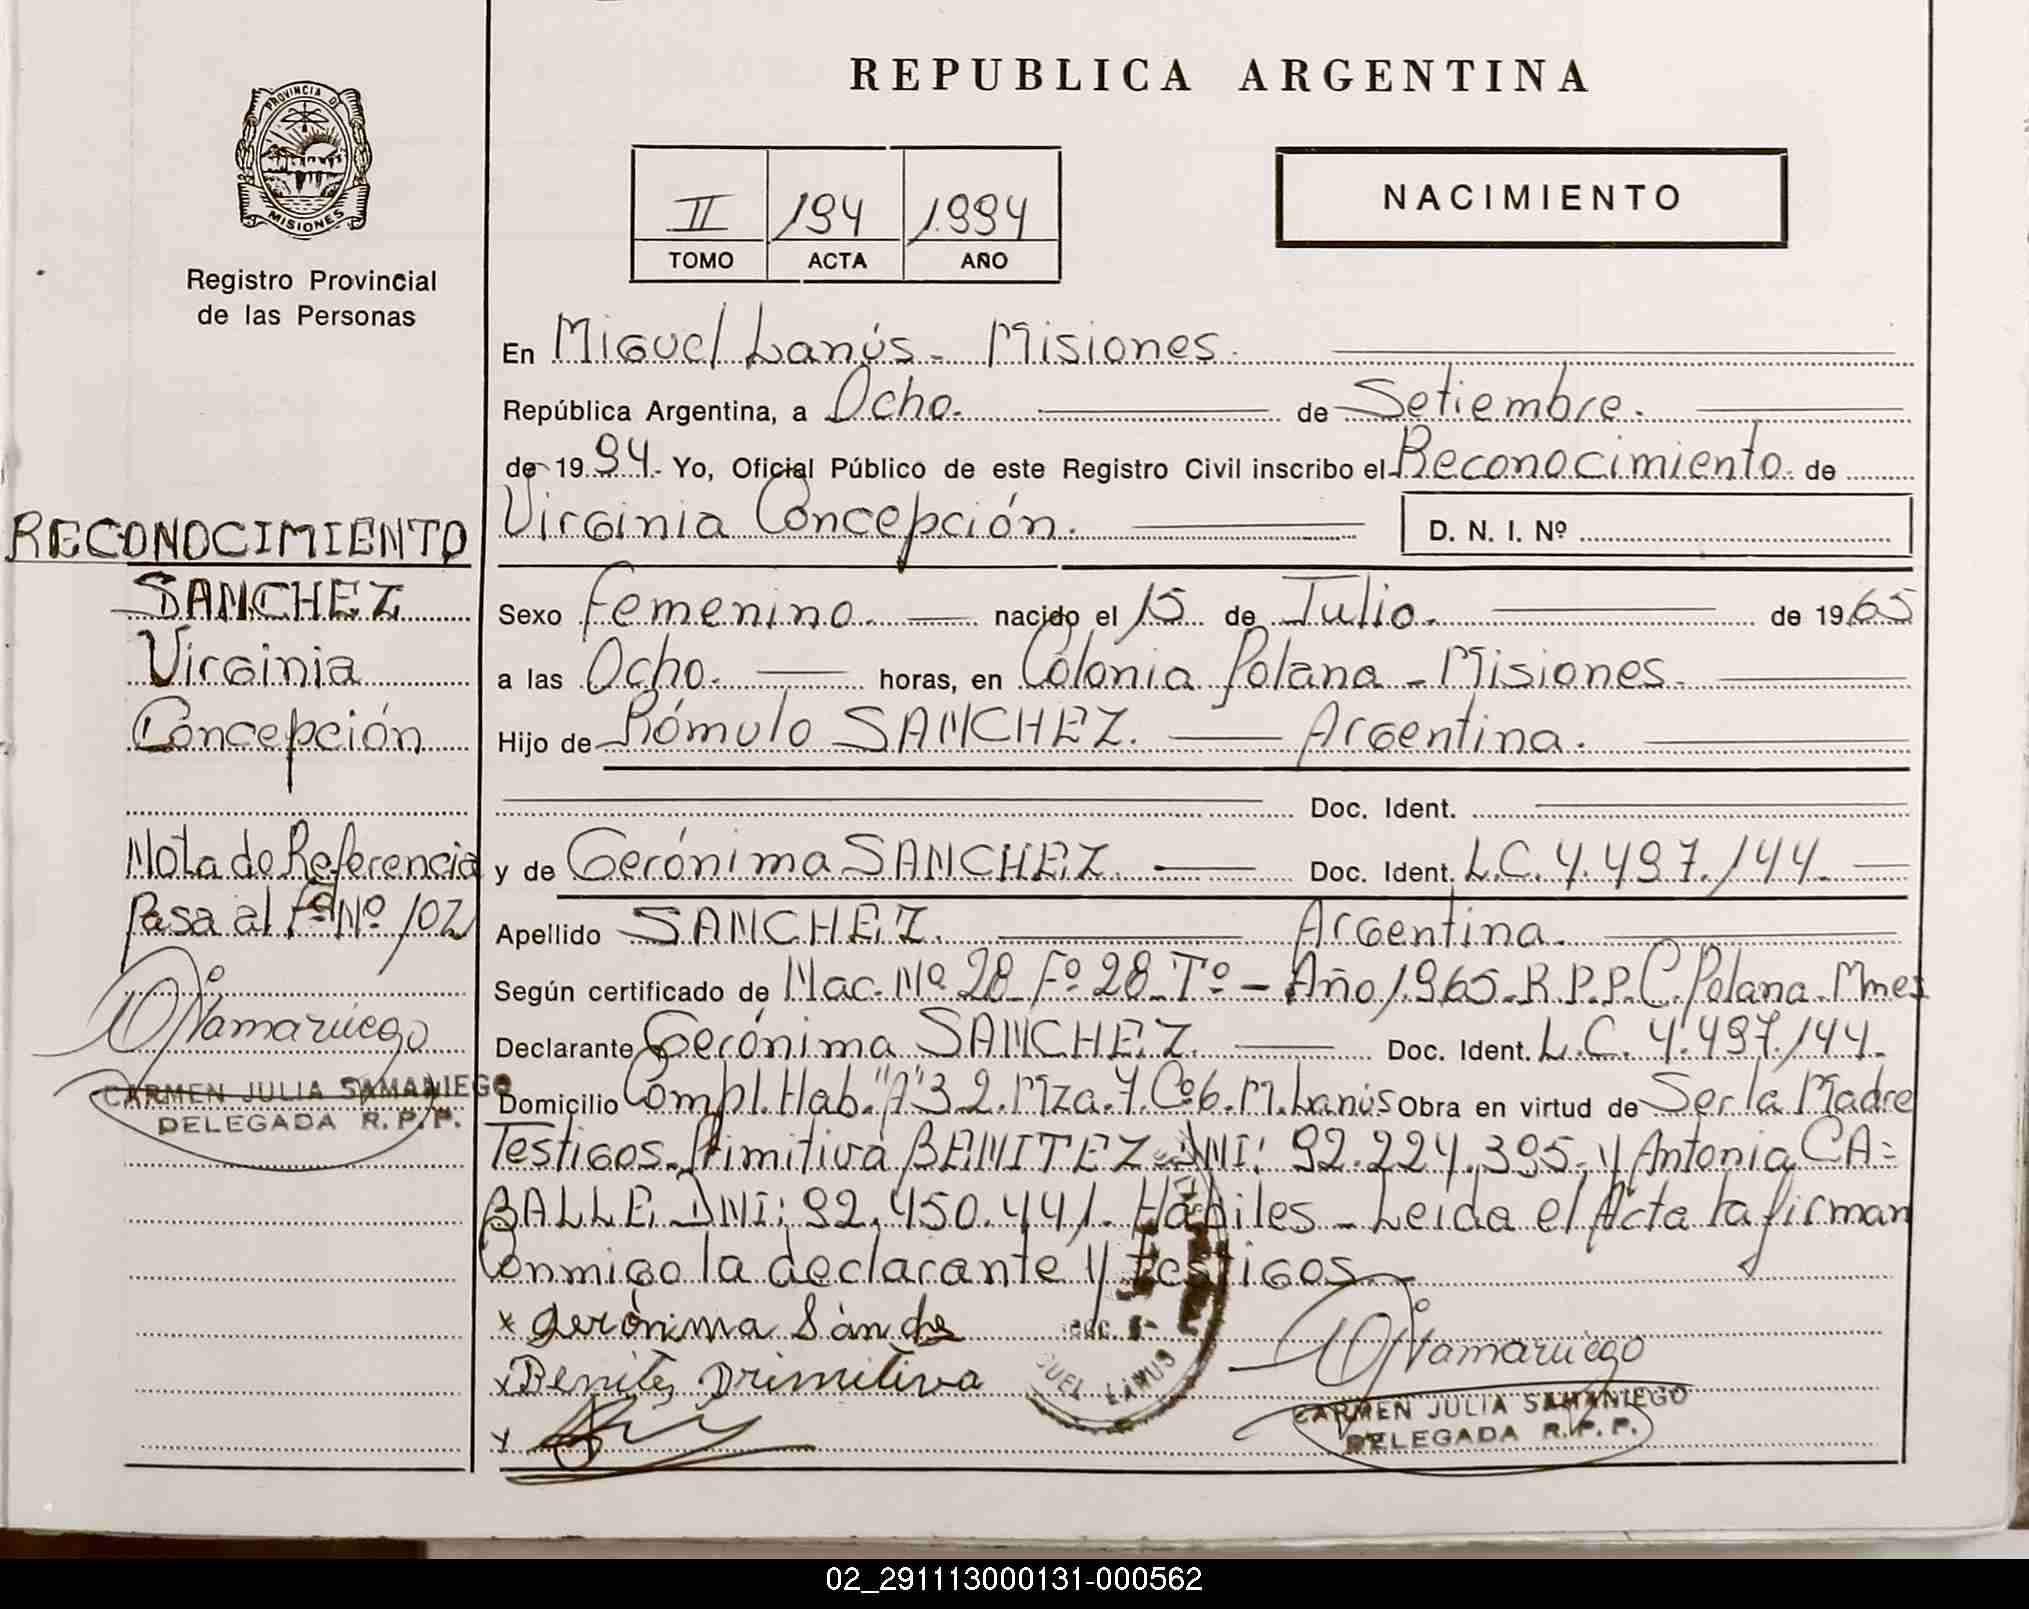 REPUBLICA ARGENTINA
PROVINCIA DE
MISIONES
Registro Provincial
de las Personas
II 194 1.994
TOMO ACTA AÑO
NACIMIENTO
En Miguel Lanús - Misiones.
República Argentina, a Ocho. de Setiembre.
de 1994. Yo, Oficial Público de este Registro Civil inscribo el Reconocimiento de
Virginia Concepción. D. N. I. Nº
Sexo Femenino. nacido el 15 de Julio. de 1965
a las Ocho. horas, en Colonia Polana - Misiones.
Hijo de Rómulo SANCHEZ. Argentina.
Doc. Ident.
y de Gerónima SANCHEZ. Doc. Ident. L.C. 4.497.144.
Apellido SANCHEZ. Argentina.
Según certificado de Nac. Nº 28 Fº 28 Tº - Año 1.965. R.P.P. C. Polana. Mnes
Declarante Gerónima SANCHEZ. Doc. Ident. L.C. 4.497.144.
Domicilio Compl. Hab. "A" 32. Mza. 7. Cº 6. M. Lanús Obra en virtud de Ser la Madre
Testigos. Primitiva BENITEZ DNI: 92.224.395. y Antonia CA=
BALLE. DNI: 92.450.441. Hábiles - Leida el Acta la firman
Conmigo la declarante y testigos
x Gerónima Sánche
x Benites primitiva
x
GUEL LANUS
CARMEN JULIA SAMANIEGO
DELEGADA R. P. P.
RECONOCIMIENTO
SANCHEZ
Virginia
Concepción
Nota de Referencia
Pasa al Fº Nº 102
CARMEN JULIA SAMANIEGO
DELEGADA R. P. P.
02_291113000131-000562